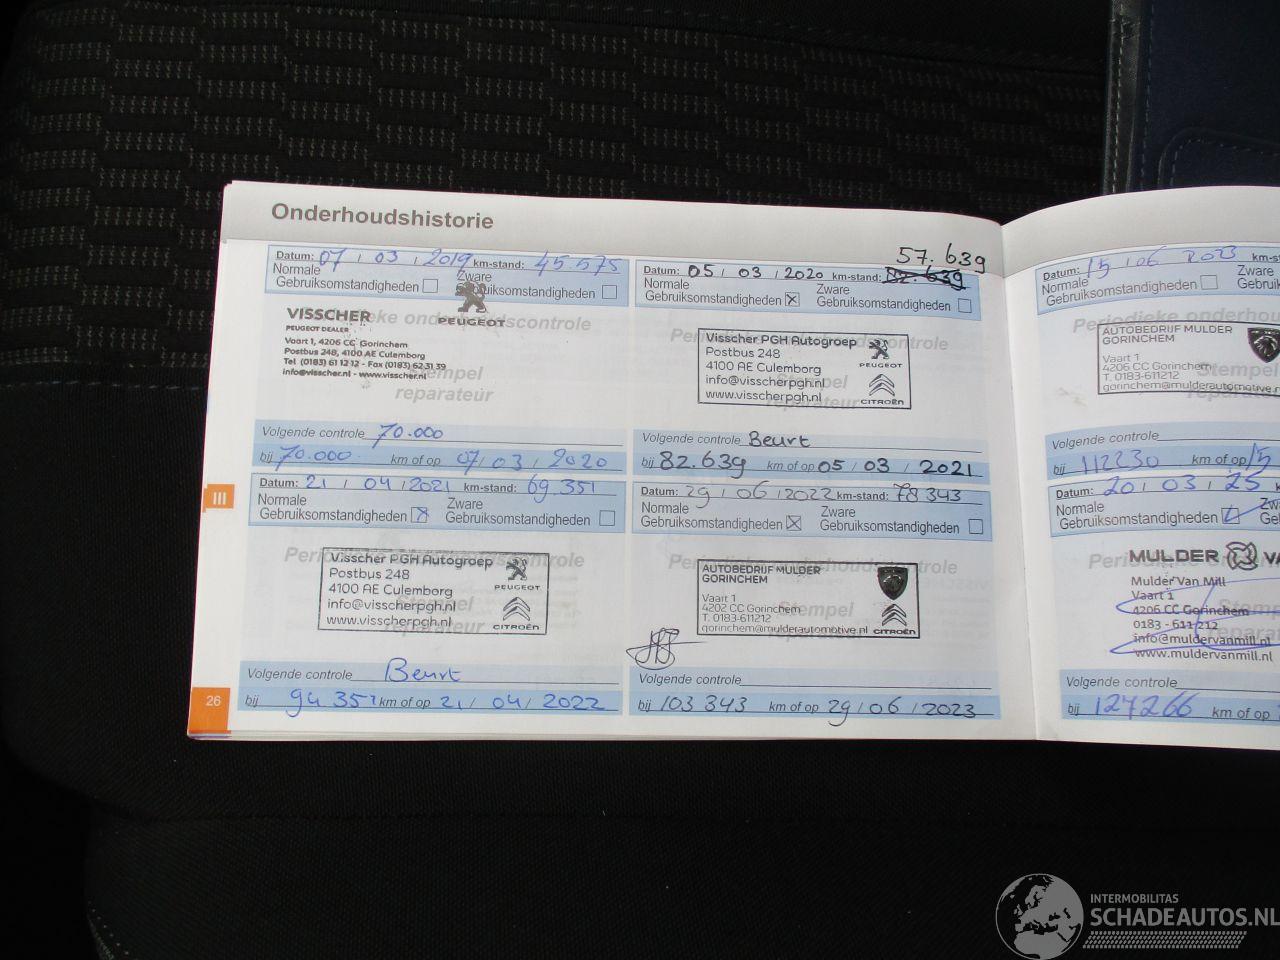 Onderhoudshistorie
Datum: 07 / 03 / 2019 km-stand: 45.575
Normale Gebruiksomstandigheden
Zware Gebruiksomstandigheden
VISSCHER
PEUGEOT DEALER
PEUGEOT
Vaart 1, 4206 CC Gorinchem
Postbus 248, 4100 AE Culemborg
Tel. (0183) 61 12 12 - Fax (0183) 62 31 39
info@visscher.nl - www.visscher.nl
Stempel
reparateur
Volgende controle 70.000
bij 70.000 km of op 07 / 03 / 2020
57.639
Datum: 05 / 03 / 2020 km-stand: 82.639
Normale Gebruiksomstandigheden
Zware Gebruiksomstandigheden
Periodieke onderhoudscontrole
Visscher PGH Autogroep
Postbus 248
4100 AE Culemborg
info@visscherpgh.nl
www.visscherpgh.nl
PEUGEOT
CITROËN
Volgende controle Beurt
bij 82.639 km of op 05 / 03 / 2021
Datum: 21 / 04 / 2021 km-stand: 69.351
Normale Gebruiksomstandigheden
Zware Gebruiksomstandigheden
Periodieke onderhoudscontrole
Visscher PGH Autogroep
Postbus 248
4100 AE Culemborg
info@visscherpgh.nl
www.visscherpgh.nl
PEUGEOT
CITROËN
Stempel
reparateur
Volgende controle Beurt
bij 94 351 km of op 21 / 04 / 2022
Datum: 29 / 06 / 2022 km-stand: 78343
Normale Gebruiksomstandigheden
Zware Gebruiksomstandigheden
Periodieke onderhoudscontrole
AUTOBEDRIJF MULDER
GORINCHEM
Vaart 1
4202 CC Gorinchem
T. 0183-611212
gorinchem@mulderautomotive.nl
CITROËN
Stempel
reparateur
Volgende controle
bij 103 343 km of op 29 / 06 / 2023
Datum: 15 / 06 / 2023 km-st
Normale Gebruiksomstandigheden
Zware
Gebruik
Periodieke onderhoudsc
AUTOBEDRIJF MULDER
GORINCHEM
Vaart 1
4206 CC Gorinchem
T. 0183-611212
gorinchem@mulderautomotive
Volgende controle
bij 112230 km of op 15
Datum: 20 / 03 / 25
Normale Gebruiksomstandigheden
MULDER VA
Mulder Van Mill
Vaart 1
4206 CC Gorinchem
0183 - 611 212
info@muldervanmill.nl
www.muldervanmill.nl
Stempel
reparateur
Volgende controle
bij 127266 km of op
III
26
INTERMOBILITAS
SCHADEAUTOS.NL